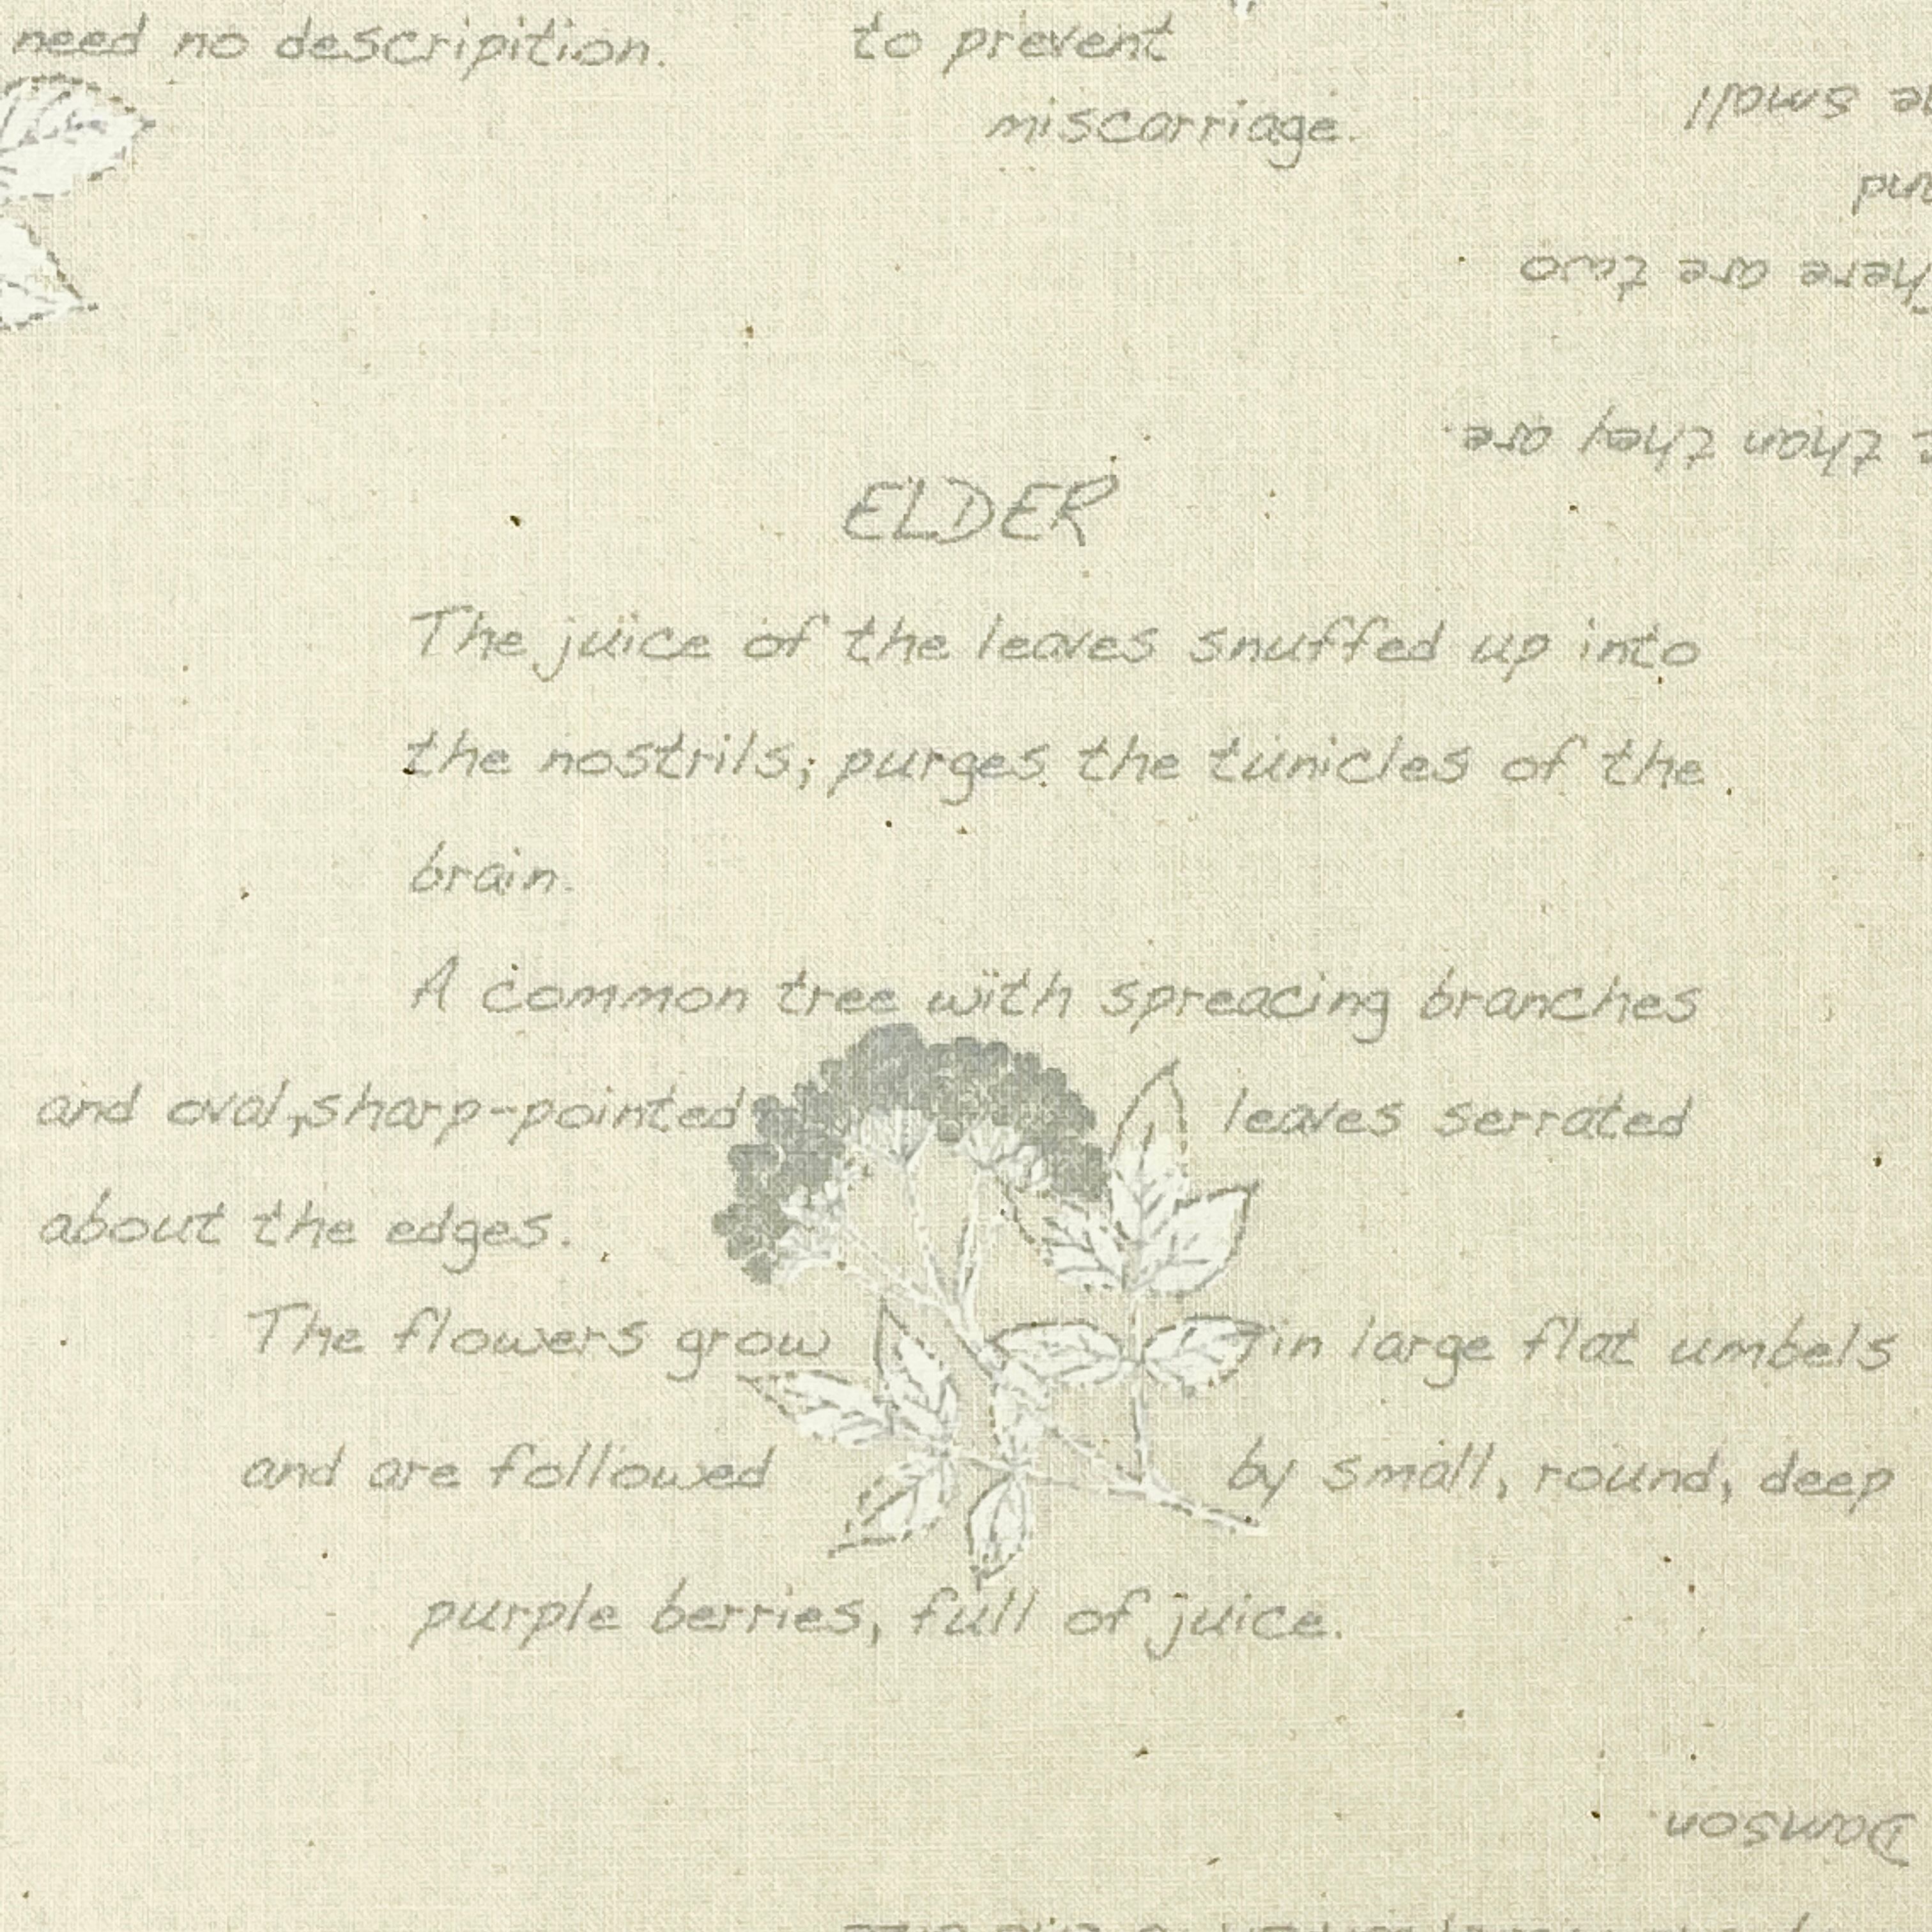 need no descripition. to prevent
miscarriage.
small
are two
than they are.
ELDER
The juice of the leaves snuffed up into
the nostrils; purges the tunicles of the
brain.
A common tree with spreacing branches
and oval, sharp-pointed leaves serrated
about the edges.
The flowers grow in large flat umbels
and are followed by small, round, deep
purple berries, full of juice.
Damson